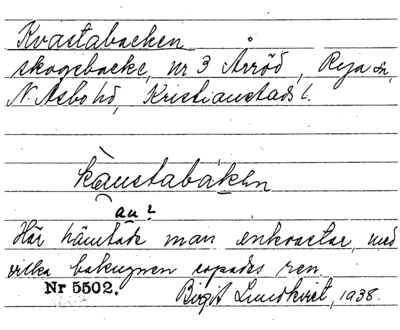 Kvastabacken
skogsbacke, nr 3 Årröd, Reja sn,
N. Åsbo hd, Kristianstads l.
kåustabákẹn
au?
Här hämtade man enkvastar, med
vilka bakugnen sopades ren.
Nr 5502. Birgit Lundkvist, 1938.